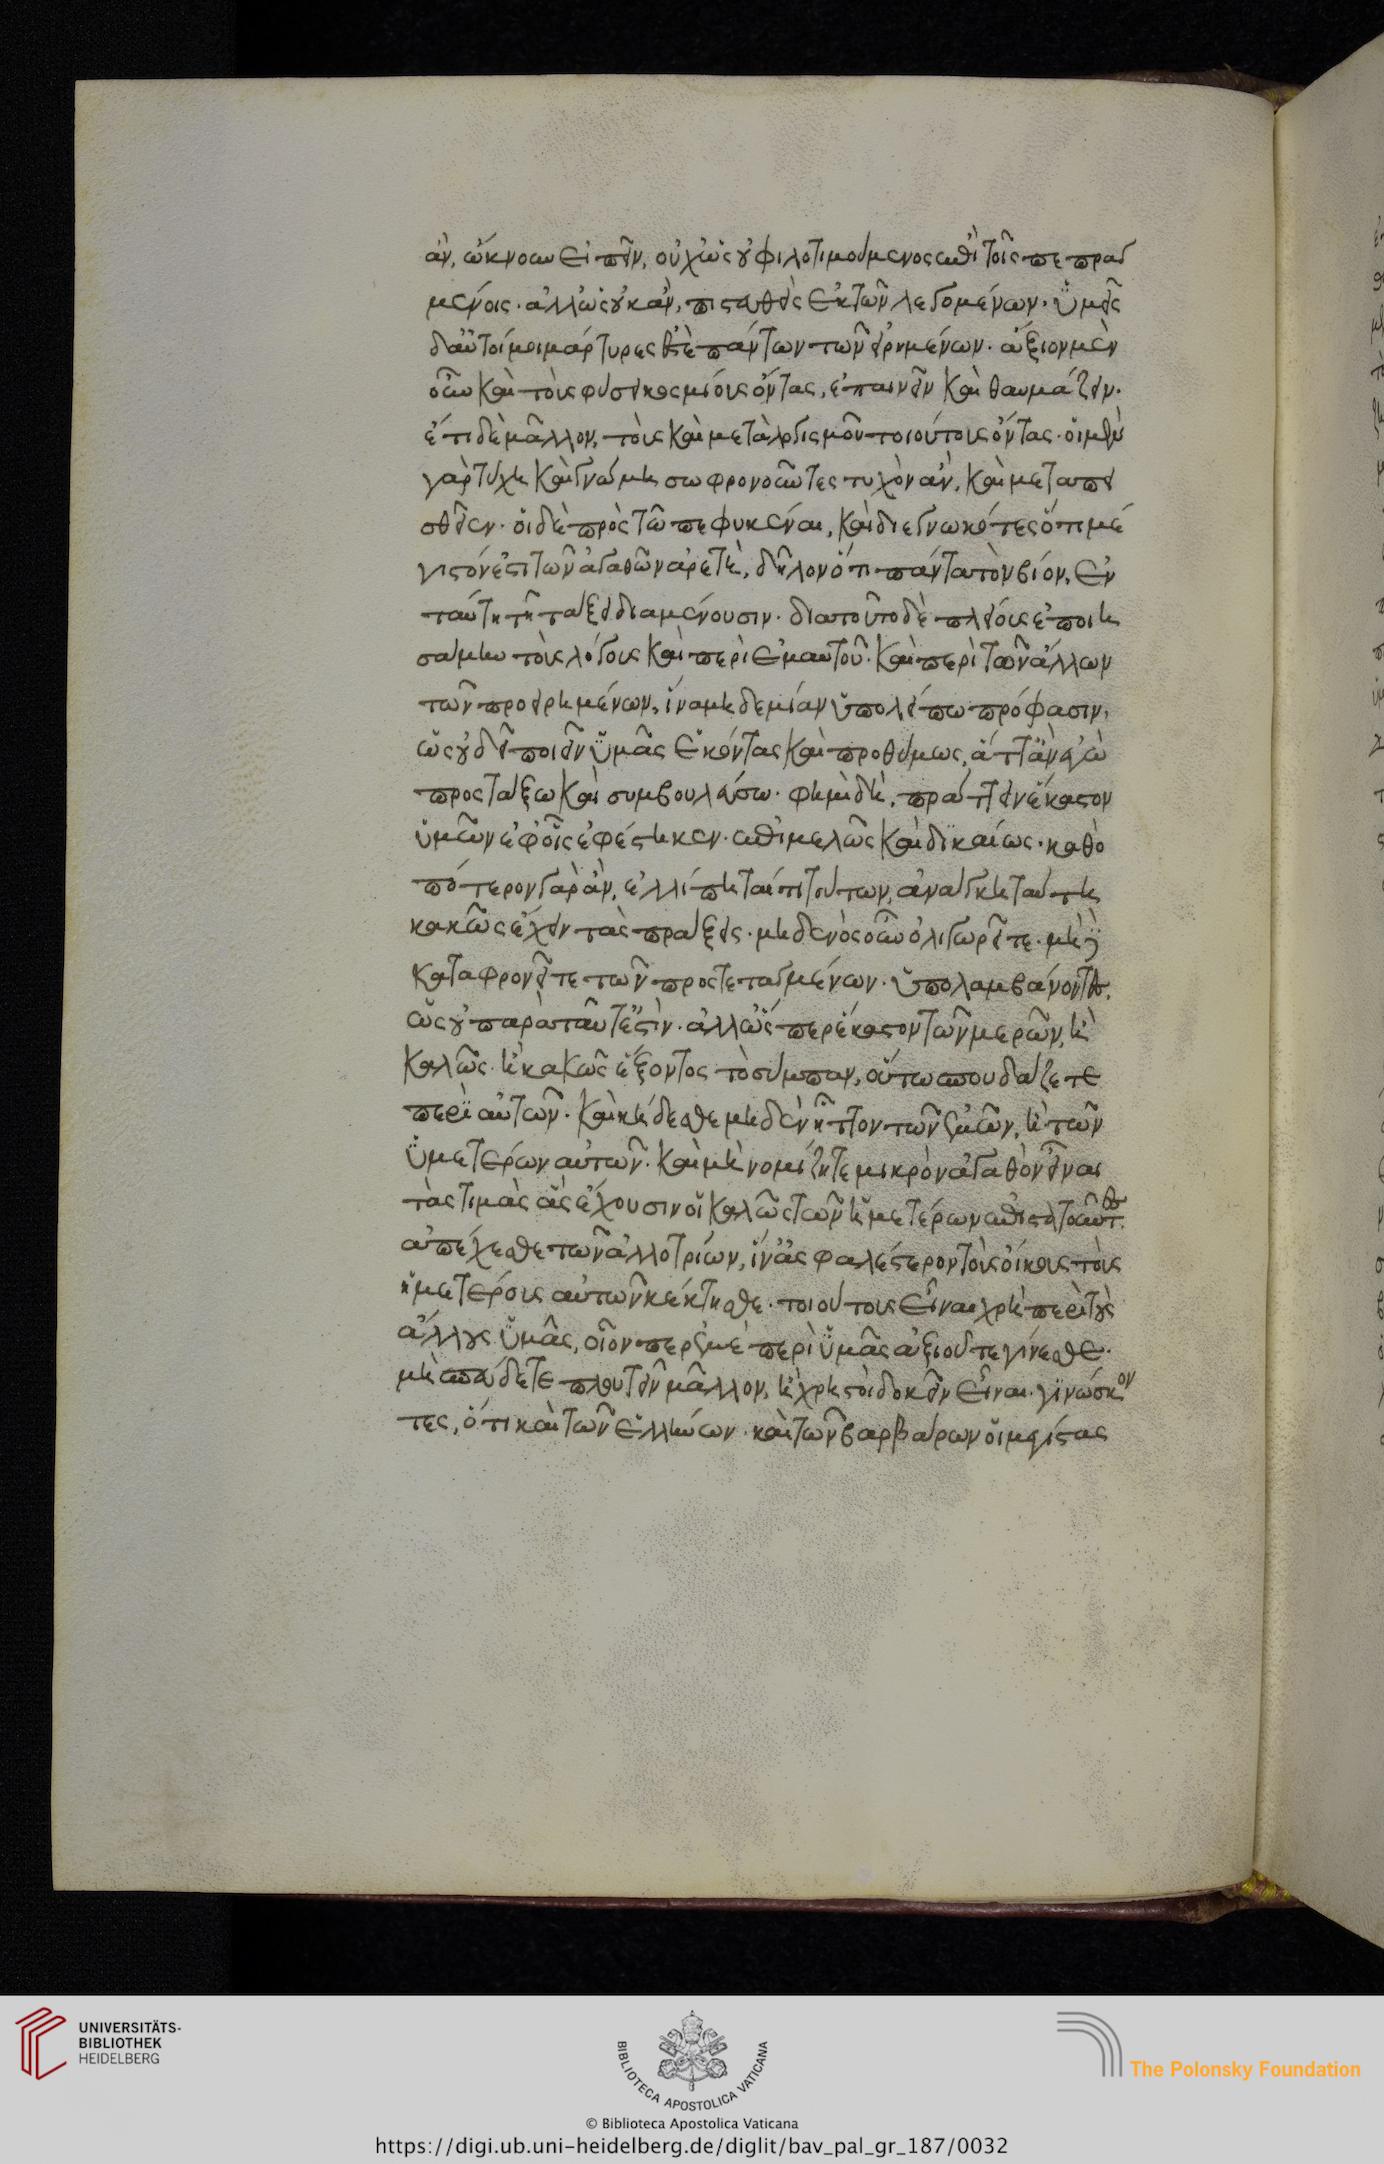 ἂν, ὤκνουν εἰπεῖν, οὐχ ὡς οὐ φιλοτιμούμενος ἐπὶ τοῖς πεπραγ
μένοις. ἀλλ' ὡς οὐκ ἂν, πιστευθεὶς ἐκ τῶν λεγομένων. ὑμεῖς
δ' αὐτοί μοι μάρτυρές ἐστε πάντων τῶν εἰρημένων. ἄξιον μὲν
οὖν καὶ τοὺς φύσει κοσμίους ὄντας, ἐπαινεῖν καὶ θαυμάζειν.
ἔτι δὲ μᾶλλον, τοὺς καὶ μετὰ λογισμοῦ τοιούτους ὄντας. οἱ μὲν
γὰρ τύχη καὶ γνώμη σωφρονοῦντες τυχὸν ἂν, καὶ μεταπει
σθεῖεν. οἱ δὲ πρὸς τῶ πεφυκέναι, καὶ διεγνωκότες ὅτι μέ
γιστόν ἐστι τῶν ἀγαθῶν ἀρετὴ, δῆλον ὅτι πάντα τὸν βίον, ἐν
ταύτη τῆ τάξει διαμένουσιν. διατοῦτο δὲ πλείους ἐποιη
σάμην τοὺς λόγους καὶ περὶ ἐμαυτοῦ. καὶ περὶ τῶν ἄλλων
τῶν προειρημένων, ἵνα μηδεμίαν ὑπολείπω πρόφασιν,
ὡς οὐ δεῖ ποιεῖν ὑμᾶς ἑκόντας καὶ προθύμως, ἅττ' ἂν ἐγὼ
προστάξω καὶ συμβουλεύσω. φημὶ δὴ, πράττειν ἕκαστον
ὑμῶν ἐφ' οἷς ἐφέστηκεν. ἐπιμελῶς καὶ δικαίως. καθ' ὁ
πότερον γὰρ ἂν, ἐλλίπητέ τι τούτων, ἀνάγκη ταύτη
κακῶς ἔχειν τὰς πράξεις. μηδενὸς οὖν ὀλιγωρεῖτε. μὴ δὲ
καταφρονεῖτε τῶν προστεταγμένων. ὑπολαμβάνοντες,
ὡς οὐ παρὰ τοῦτ' ἔστιν. ἀλλ' ὥσπερ ἕκαστον τῶν μερῶν, ἢ
καλῶς. ἢ κακῶς ἕξοντος τὸ σύμπαν, οὕτω σπουδάζετε
περὶ αὐτῶν. καὶ κήδεσθε μηδὲν ἧττον τῶν ἐμῶν, ἢ τῶν
ὑμετέρων αὐτῶν. καὶ μὴ νομίζητε μικρὸν ἀγαθὸν εἶναι
τὰς τιμὰς ἃς ἔχουσιν οἱ καλῶς τῶν ἡμετέρων ἐπιστατοῦντες.
ἀπέχεσθε τῶν ἀλλοτρίων, ἵν' ἀσφαλέστερον τοὺς οἴκους τοὺς
ἡμετέρους αὐτῶν κέκτησθε. τοιούτους εἶναι χρὴ περὶ τοὺς
ἄλλους ὑμᾶς, οἷόν περ ἐμὲ περὶ ὑμᾶς ἀξιοῦτε γίνεσθε.
μὴ σπεύδετε πλουτεῖν μᾶλλον, ἢ χρηστοὶ δοκεῖν εἶναι. γινώσκον
τες, ὅτι καὶ τῶν ἑλλήνων. καὶ τῶν βαρβάρων οἱ μεγίστας
UNIVERSITÄTS-
BIBLIOTHEK
HEIDELBERG
BIBLIOTECA APOSTOLICA VATICANA
The Polonsky Foundation
© Biblioteca Apostolica Vaticana
https://digi.ub.uni-heidelberg.de/diglit/bav_pal_gr_187/0032